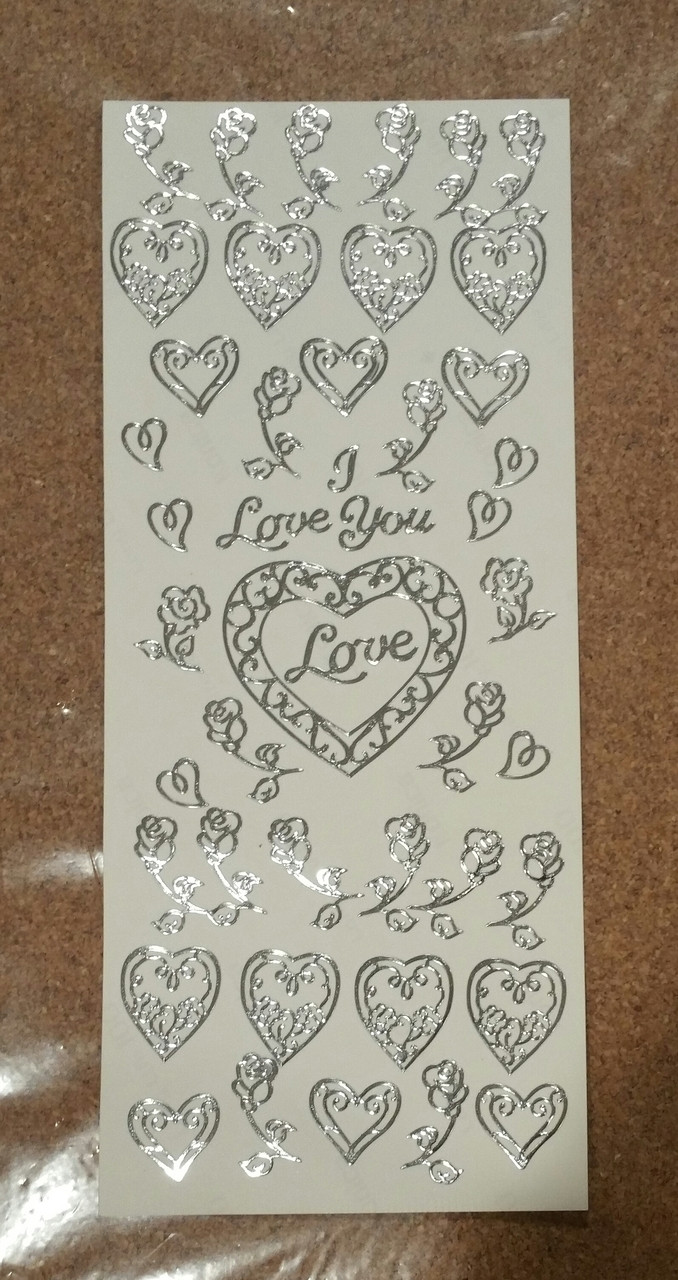 I
Love You
Love